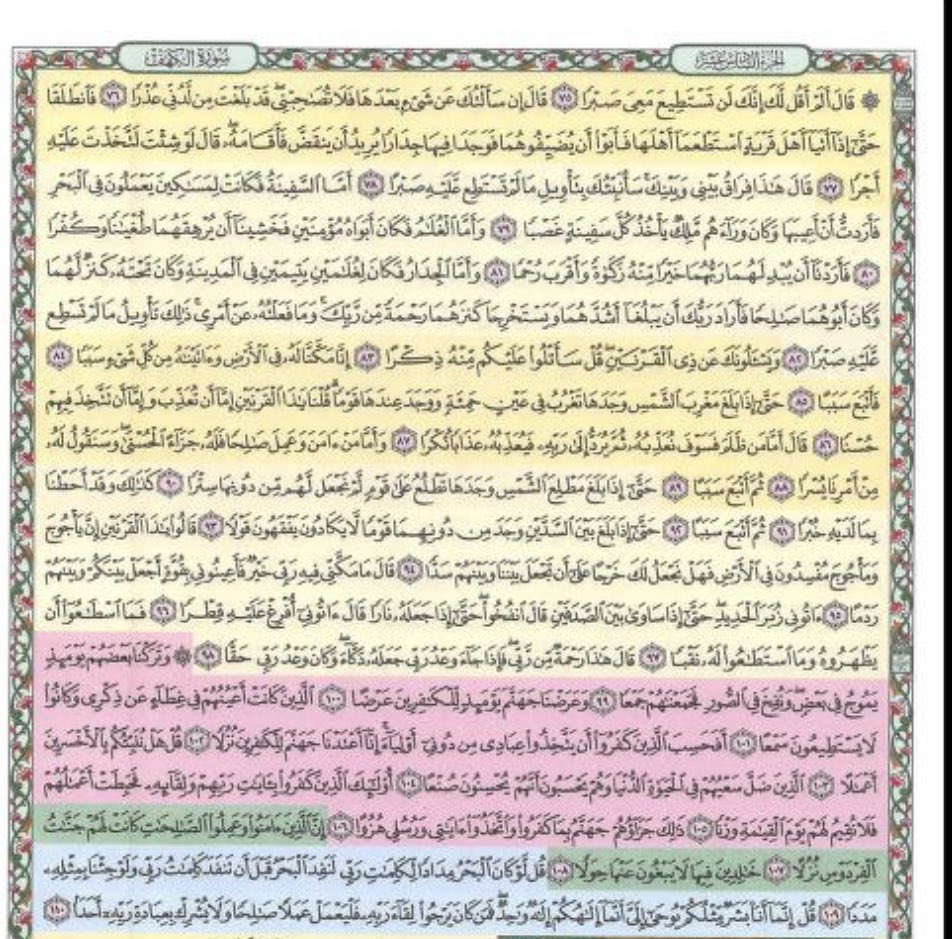 سورة الكهف
الجزء السادس عشر
۞ قَالَ أَلَمْ أَقُل لَّكَ إِنَّكَ لَن تَسْتَطِيعَ مَعِىَ صَبْرًا ٧٥ قَالَ إِن سَأَلْتُكَ عَن شَىْءٍۭ بَعْدَهَا فَلَا تُصَٰحِبْنِى ۖ قَدْ بَلَغْتَ مِن لَّدُنِّى عُذْرًا ٧٦ فَٱنطَلَقَا
حَتَّىٰٓ إِذَآ أَتَيَآ أَهْلَ قَرْيَةٍ ٱسْتَطْعَمَآ أَهْلَهَا فَأَبَوْا۟ أَن يُضَيِّفُوهُمَا فَوَجَدَا فِيهَا جِدَارًا يُرِيدُ أَن يَنقَضَّ فَأَقَامَهُۥ ۖ قَالَ لَوْ شِئْتَ لَتَّخَذْتَ عَلَيْهِ
أَجْرًا ٧٧ قَالَ هَٰذَا فِرَاقُ بَيْنِى وَبَيْنِكَ ۚ سَأُنَبِّئُكَ بِتَأْوِيلِ مَا لَمْ تَسْتَطِع عَّلَيْهِ صَبْرًا ٧٨ أَمَّا ٱلسَّفِينَةُ فَكَانَتْ لِمَسَٰكِينَ يَعْمَلُونَ فِى ٱلْبَحْرِ
فَأَرَدتُّ أَنْ أَعِيبَهَا وَكَانَ وَرَآءَهُم مَّلِكٌ يَأْخُذُ كُلَّ سَفِينَةٍ غَصْبًا ٧٩ وَأَمَّا ٱلْغُلَٰمُ فَكَانَ أَبَوَاهُ مُؤْمِنَيْنِ فَخَشِينَآ أَن يُرْهِقَهُمَا طُغْيَٰنًا وَكُفْرًا
٨٠ فَأَرَدْنَآ أَن يُبْدِلَهُمَا رَبُّهُمَا خَيْرًا مِّنْهُ زَكَوٰةً وَأَقْرَبَ رُحْمًا ٨١ وَأَمَّا ٱلْجِدَارُ فَكَانَ لِغُلَٰمَيْنِ يَتِيمَيْنِ فِى ٱلْمَدِينَةِ وَكَانَ تَحْتَهُۥ كَنزٌ لَّهُمَا
وَكَانَ أَبُوهُمَا صَٰلِحًا فَأَرَادَ رَبُّكَ أَن يَبْلُغَآ أَشُدَّهُمَا وَيَسْتَخْرِجَا كَنزَهُمَا رَحْمَةً مِّن رَّبِّكَ ۚ وَمَا فَعَلْتُهُۥ عَنْ أَمْرِى ۚ ذَٰلِكَ تَأْوِيلُ مَا لَمْ تَسْطِع
عَّلَيْهِ صَبْرًا ٨٢ وَيَسْـَٔلُونَكَ عَن ذِى ٱلْقَرْنَيْنِ ۖ قُلْ سَأَتْلُوا۟ عَلَيْكُم مِّنْهُ ذِكْرًا ٨٣ إِنَّا مَكَّنَّا لَهُۥ فِى ٱلْأَرْضِ وَءَاتَيْنَٰهُ مِن كُلِّ شَىْءٍ سَبَبًا ٨٤
فَأَتْبَعَ سَبَبًا ٨٥ حَتَّىٰٓ إِذَا بَلَغَ مَغْرِبَ ٱلشَّمْسِ وَجَدَهَا تَغْرُبُ فِى عَيْنٍ حَمِئَةٍ وَوَجَدَ عِندَهَا قَوْمًا ۗ قُلْنَا يَٰذَا ٱلْقَرْنَيْنِ إِمَّآ أَن تُعَذِّبَ وَإِمَّآ أَن تَتَّخِذَ فِيهِمْ
حُسْنًا ٨٦ قَالَ أَمَّا مَن ظَلَمَ فَسَوْفَ نُعَذِّبُهُۥ ثُمَّ يُرَدُّ إِلَىٰ رَبِّهِۦ فَيُعَذِّبُهُۥ عَذَابًا نُّكْرًا ٨٧ وَأَمَّا مَنْ ءَامَنَ وَعَمِلَ صَٰلِحًا فَلَهُۥ جَزَآءً ٱلْحُسْنَىٰ ۖ وَسَنَقُولُ لَهُۥ
مِنْ أَمْرِنَا يُسْرًا ٨٨ ثُمَّ أَتْبَعَ سَبَبًا ٨٩ حَتَّىٰٓ إِذَا بَلَغَ مَطْلِعَ ٱلشَّمْسِ وَجَدَهَا تَطْلُعُ عَلَىٰ قَوْمٍ لَّمْ نَجْعَل لَّهُم مِّن دُونِهَا سِتْرًا ٩٠ كَذَٰلِكَ وَقَدْ أَحَطْنَا
بِمَا لَدَيْهِ خُبْرًا ٩١ ثُمَّ أَتْبَعَ سَبَبًا ٩٢ حَتَّىٰٓ إِذَا بَلَغَ بَيْنَ ٱلسَّدَّيْنِ وَجَدَ مِن دُونِهِمَا قَوْمًا لَّا يَكَادُونَ يَفْقَهُونَ قَوْلًا ٩٣ قَالُوا۟ يَٰذَا ٱلْقَرْنَيْنِ إِنَّ يَأْجُوجَ
وَمَأْجُوجَ مُفْسِدُونَ فِى ٱلْأَرْضِ فَهَلْ نَجْعَلُ لَكَ خَرْجًا عَلَىٰٓ أَن تَجْعَلَ بَيْنَنَا وَبَيْنَهُمْ سَدًّا ٩٤ قَالَ مَا مَكَّنِّى فِيهِ رَبِّى خَيْرٌ فَأَعِينُونِى بِقُوَّةٍ أَجْعَلْ بَيْنَكُمْ وَبَيْنَهُمْ
رَدْمًا ٩٥ ءَاتُونِى زُبَرَ ٱلْحَدِيدِ ۖ حَتَّىٰٓ إِذَا سَاوَىٰ بَيْنَ ٱلصَّدَفَيْنِ قَالَ ٱنفُخُوا۟ ۖ حَتَّىٰٓ إِذَا جَعَلَهُۥ نَارًا قَالَ ءَاتُونِىٓ أُفْرِغْ عَلَيْهِ قِطْرًا ٩٦ فَمَا ٱسْطَٰعُوٓا۟ أَن
يَظْهَرُوهُ وَمَا ٱسْتَطَٰعُوا۟ لَهُۥ نَقْبًا ٩٧ قَالَ هَٰذَا رَحْمَةٌ مِّن رَّبِّى ۖ فَإِذَا جَآءَ وَعْدُ رَبِّى جَعَلَهُۥ دَكَّآءَ ۖ وَكَانَ وَعْدُ رَبِّى حَقًّا ٩٨ ۞ وَتَرَكْنَا بَعْضَهُمْ يَوْمَئِذٍ
يَمُوجُ فِى بَعْضٍ ۖ وَنُفِخَ فِى ٱلصُّورِ فَجَمَعْنَٰهُمْ جَمْعًا ٩٩ وَعَرَضْنَا جَهَنَّمَ يَوْمَئِذٍ لِّلْكَٰفِرِينَ عَرْضًا ١٠٠ ٱلَّذِينَ كَانَتْ أَعْيُنُهُمْ فِى غِطَآءٍ عَن ذِكْرِى وَكَانُوا۟
لَا يَسْتَطِيعُونَ سَمْعًا ١٠١ أَفَحَسِبَ ٱلَّذِينَ كَفَرُوٓا۟ أَن يَتَّخِذُوا۟ عِبَادِى مِن دُونِىٓ أَوْلِيَآءَ ۚ إِنَّآ أَعْتَدْنَا جَهَنَّمَ لِلْكَٰفِرِينَ نُزُلًا ١٠٢ قُلْ هَلْ نُنَبِّئُكُم بِٱلْأَخْسَرِينَ
أَعْمَٰلًا ١٠٣ ٱلَّذِينَ ضَلَّ سَعْيُهُمْ فِى ٱلْحَيَوٰةِ ٱلدُّنْيَا وَهُمْ يَحْسَبُونَ أَنَّهُمْ يُحْسِنُونَ صُنْعًا ١٠٤ أُو۟لَٰٓئِكَ ٱلَّذِينَ كَفَرُوا۟ بِـَٔايَٰتِ رَبِّهِمْ وَلِقَآئِهِۦ فَحَبِطَتْ أَعْمَٰلُهُمْ
فَلَا نُقِيمُ لَهُمْ يَوْمَ ٱلْقِيَٰمَةِ وَزْنًا ١٠٥ ذَٰلِكَ جَزَآؤُهُمْ جَهَنَّمُ بِمَا كَفَرُوا۟ وَٱتَّخَذُوٓا۟ ءَايَٰتِى وَرُسُلِى هُزُوًا ١٠٦ إِنَّ ٱلَّذِينَ ءَامَنُوا۟ وَعَمِلُوا۟ ٱلصَّٰلِحَٰتِ كَانَتْ لَهُمْ جَنَّٰتُ
ٱلْفِرْدَوْسِ نُزُلًا ١٠٧ خَٰلِدِينَ فِيهَا لَا يَبْغُونَ عَنْهَا حِوَلًا ١٠٨ قُل لَّوْ كَانَ ٱلْبَحْرُ مِدَادًا لِّكَلِمَٰتِ رَبِّى لَنَفِدَ ٱلْبَحْرُ قَبْلَ أَن تَنفَدَ كَلِمَٰتُ رَبِّى وَلَوْ جِئْنَا بِمِثْلِهِۦ
مَدَدًا ١٠٩ قُلْ إِنَّمَآ أَنَا۠ بَشَرٌ مِّثْلُكُمْ يُوحَىٰٓ إِلَىَّ أَنَّمَآ إِلَٰهُكُمْ إِلَٰهٌ وَٰحِدٌ ۖ فَمَن كَانَ يَرْجُوا۟ لِقَآءَ رَبِّهِۦ فَلْيَعْمَلْ عَمَلًا صَٰلِحًا وَلَا يُشْرِكْ بِعِبَادَةِ رَبِّهِۦٓ أَحَدًۢا ١١٠